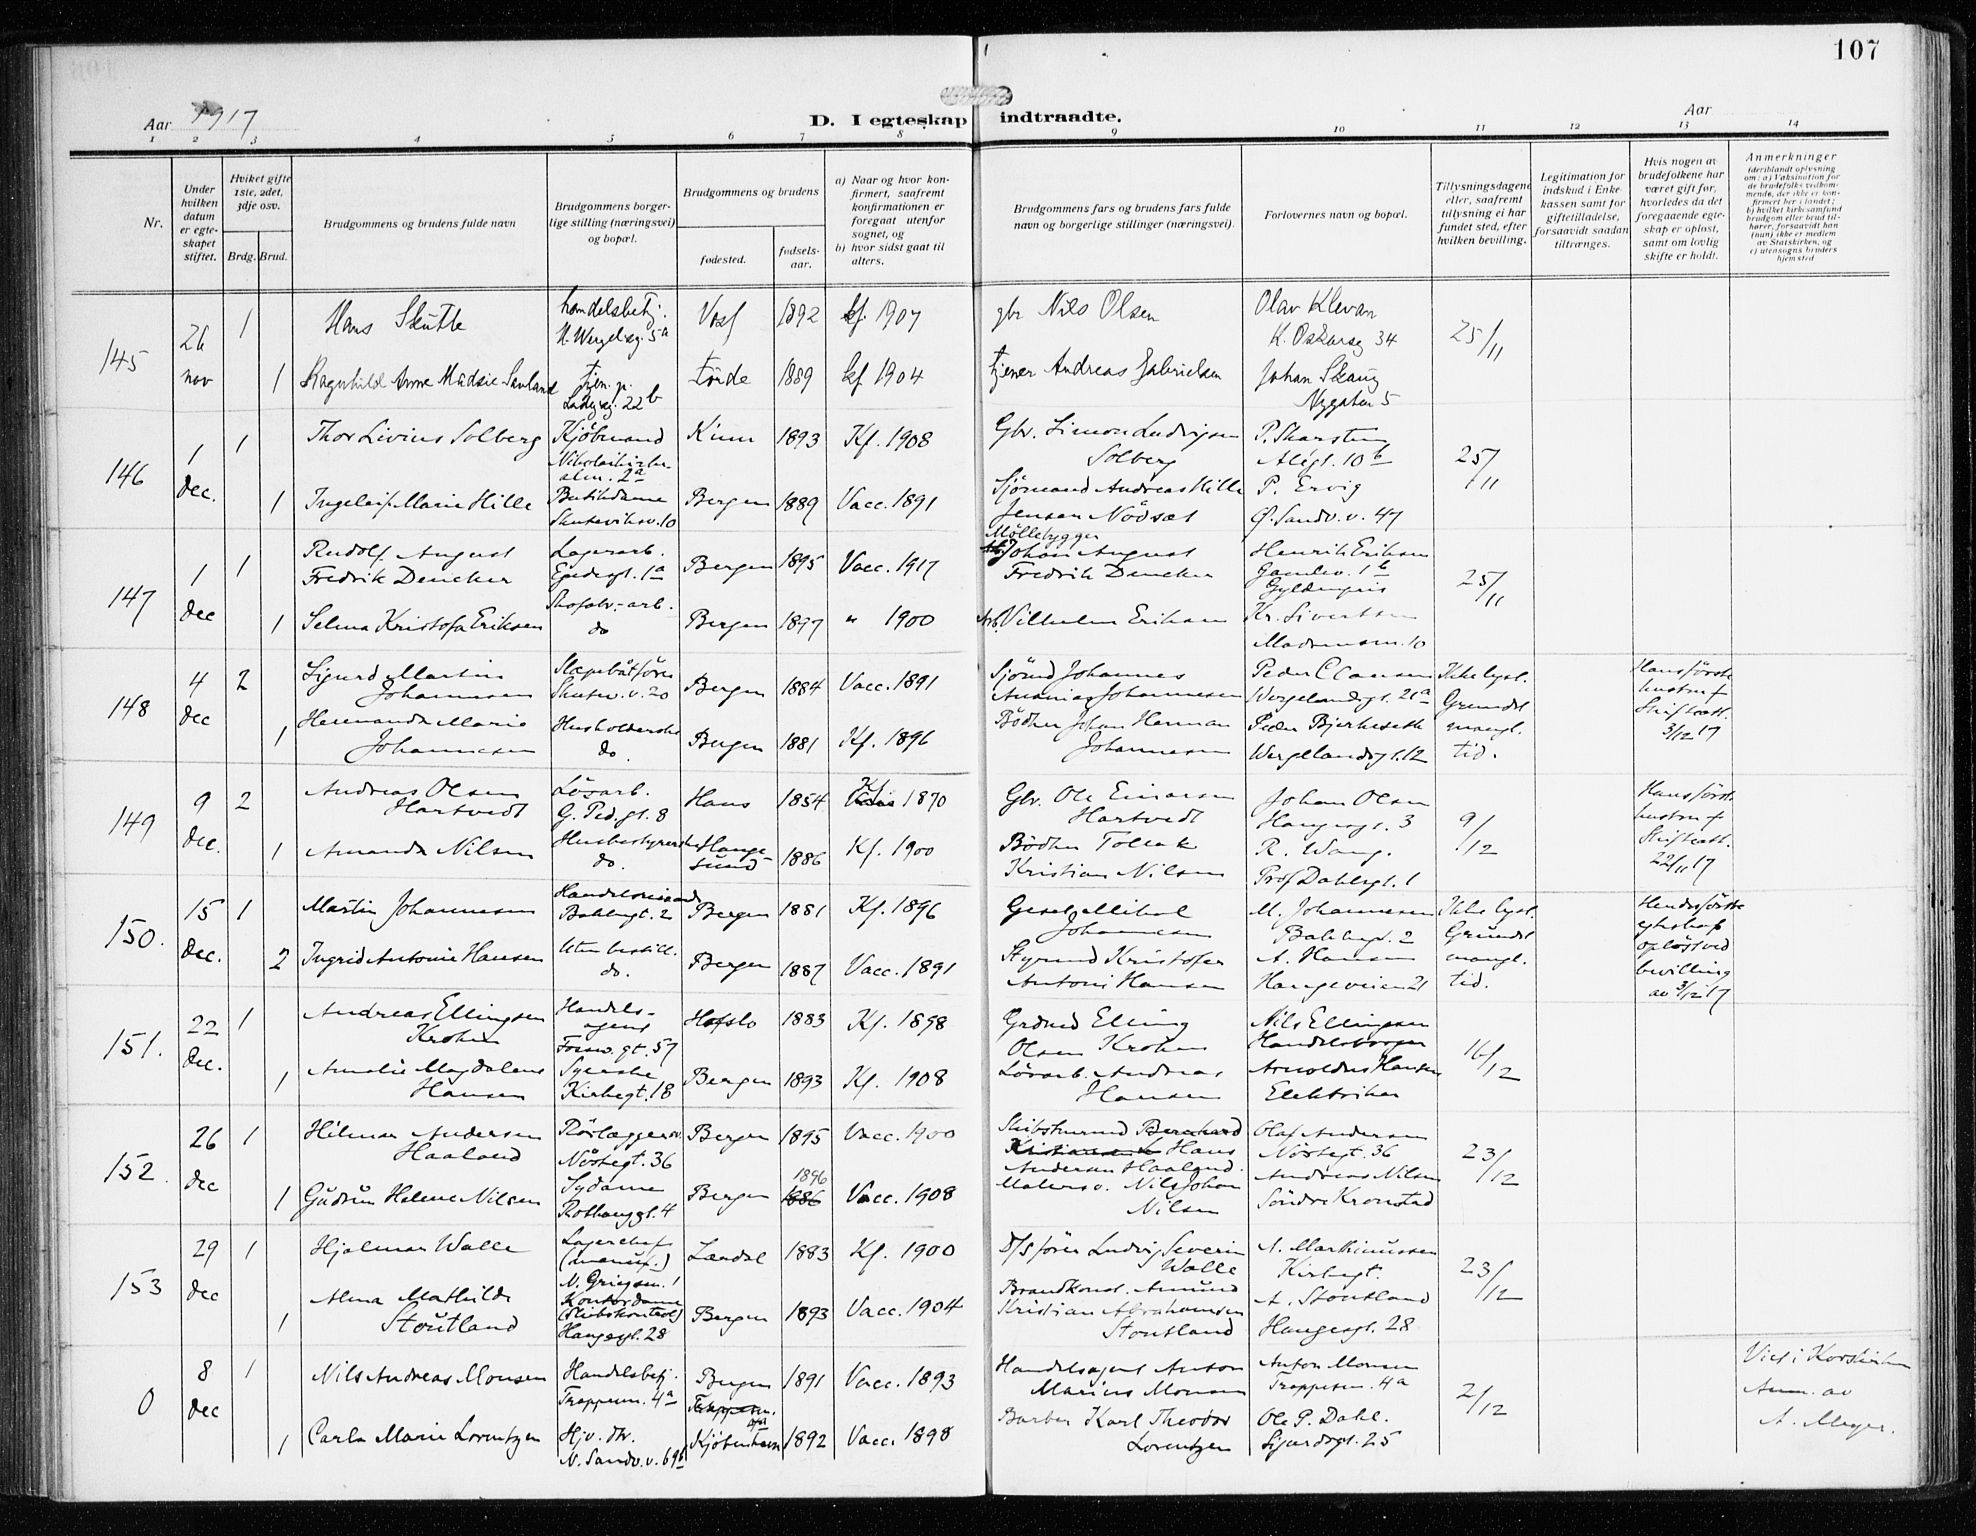 107
Aar 1917
D. I egteskap indtraadte.
Aar
1 2 3 4 5 6 7 8 9 10 11 12 13 14
Nr.
Under hvilken datum er egteskapet stiftet.
Hvilket gifte 1ste, 2det, 3dje osv.
Brdg. Brud.
Brudgommens og brudens fulde navn
Brudgommens borgerlige stilling (næringsvei) og bopæl.
Brudgommens og brudens
fødested.
fødselsaar.
a) Naar og hvor konfirmert, saafremt konfirmationen er foregaat utenfor sognet, og
b) hvor sidst gaat til alters.
Brudgommens fars og brudens fars fulde navn og borgerlige stillinger (næringsvei).
Forlovernes navn og bopæl.
Tillysningsdagene eller, saafremt tillysning ei har fundet sted, efter hvilken bevilling.
Legitimation for indskud i Enkekassen samt for giftetilladelse, forsaavidt saadan tiltrænges.
Hvis nogen av brudefolkene har været gift før, hvorledes da det foregaaende egteskap er opløst, samt om lovlig skifte er holdt.
Anmerkninger
145 26 nov 1 Hans Skutle handelsbetj. H. Wergelsg. 5a Voss 1892 kf. 1907 gbr Nils Olsen Olav Klevan K. Oskarsg 34 25/11
1 Ragnhild Anne Madsie Savland tjen. p. Ladeg.g. 22b Førde 1889 kf 1904 tjener Andreas Gabrielsen Johan Skaug Nygaten 5
146 1 Dec. 1 Thor Livius Solberg Kjøbmand Nikolaikirkealm. 2a Kinn 1893 Kf. 1908 Gbr. Simon Ludvigsen Solberg P. Skarsten Alégt. 10b 25/11
1 Ingeleif Marie Hille Butikdame Skuteviksv. 10 Bergen 1889 Vacc. 1891 Sjømand Andreas Hille Jensen Nødset P. Ervig Ø. Sandv. v. 47
147 1 Dec 1 Rudolf August Fredrik Deneker Lagerarb. Bergen 1895 Vacc. 1917 Møllebygger Johan August Fredrik Deneker Henrik Eriksen Gamlev. 1b 25/11
1 Selma Kristofa Eriksen Skofabr.-arb. do Bergen 1897 " 1900 Arb. Vilhelm Eriksen Kr. Sivertsen 10
148 4 Dec 2 Sigurd Martin Johannesen Slæpebåtfører Skutev. v. 20 Bergen 1884 Vacc. 1891 Sjømd Johannes Johannesen Peder C Clausen Wergelandsgt. 21a Ikke lyst. Grundet mangl. tid. Hans første hustru † Skifteatt. 3/12 17
1 Hermanda Marie Johannesen Husholderske do. Bergen 1881 Kf. 1896 Bødker Johan Herman Johannesen Peder Bjerkesett Wergelandsgt. 12
149 9 Dec. 2 Andreas Olsen Hartvedt Løsarb. G. Ped. gt. 8 Haus 1854 Kf. 1870 Gbr. Ole Einarsen Hartvedt Johan Olsen Haugesgt. 3 9/12 Hans første hustru † Skifteatt. 22/11 17
1 Amanda Nilsen Husbestyrerske do. Haugesund 1886 Kf. 1900 Bødker Tollak Kristian Nilsen R. Wang. Prof Dahlsgt. 1
150. 15 Dec. 1 Martin Johannesen Handelsreisende Bakkegt. 2 Bergen 1881 Kf. 1896 Gesel Mikal Johannesen M. Johannesen Bakkegt. 2 Ikke lyst. Grundet mangl. tid. Hendes første egteskap opløst ved bevilling av 3/12 17
2 Ingrid Antonie Hansen Uten bestill. do. Bergen 1887 Vacc. 1891 Styrmd Kristofer Antoni Hansen A. Hansen Haugeveien 21
151. 22 Dec. 1 Andreas Ellingsen Krohn Handelsagent Fossw. gt. 57 Hofslo 1883 Kf. 1898 Grdmd Elling Olsen Krohn Nils Ellingsen Handelsborger 16/12
1 Amalie Magdalene Hansen Syerske Kirkegt. 18 Bergen 1893 Kf. 1908 Løsarb. Andreas Hansen Arnoldus Hansen Elektriker
152. 26 Dec 1 Hilmar Andersen Haaland Rørlæggersv. Nøstegt. 36 Bergen 1895 Vacc. 1900 Skibstmrmd Bernhard Hans Andersen Haaland. Olaf Andersen Nøstegt. 36 23/12
1 Gudrun Helene Nilsen Sydame Rothauggt. 4 Bergen 1896 1886 Vacc. 1908 Malersv. Nils Johan Nilsen Andreas Nilsen Søndre Kronstad
153 29 Dec 1 Hjalmar Walle Lagerchef (manuf.) N. Griegsm. 1 Landøl 1883 Kf. 1900 D/S fører Ludvig Severin Walle A. Marthinussen Kirkegt. 23/12
1 Alma Mathilde Stoutland Kontordame (Skibskontor) Haugesgt. 28 Bergen 1893 Vacc. 1904 Brandkonst. Amund Kristian Abrahamsen Stoutland A. Stoutland Haugesgt. 28
0 8 Dec 1 Nils Andreas Monsen Handelsbetj. Trappesm. 4a Bergen 1891 Vacc. 1893 Handelsagent Anton Marius Monsen Anton Monsen Trappesm. 4a 2/12 Viet i Korskirken Anm. av A. Meyer.
1 Carla Marie Lorentzen Hjv. dtr. N. Sandv. v. 69b Kjøbenhavn 1892 Vacc. 1898 Barber Karl Theodor Lorentzen Ole P. Dahl. Sigurdsgt. 25